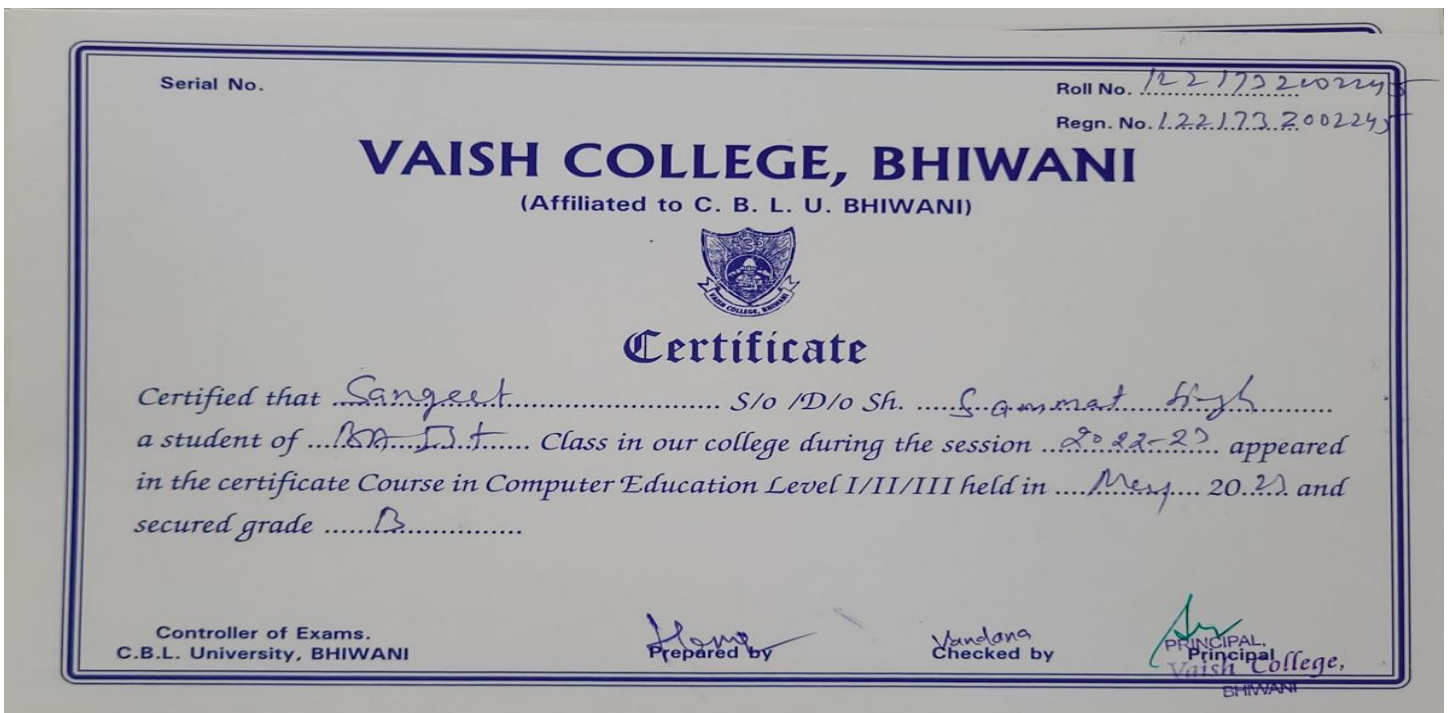 Serial No.
Roll No. 1221732002245
Regn. No. 1221732002245
VAISH COLLEGE, BHIWANI
(Affiliated to C. B. L. U. BHIWANI)
VAISH COLLEGE, BHIWANI
Certificate
Certified that Sangeet S/o /D/o Sh. Sammat Singh
a student of BA Ist Class in our college during the session 2022-23 appeared
in the certificate Course in Computer Education Level I/II/III held in May 2023 and
secured grade B
Controller of Exams.
C.B.L. University, BHIWANI
Prepared by
Vandana
Checked by
PRINCIPAL,
Principal
Vaish College,
BHIWANI